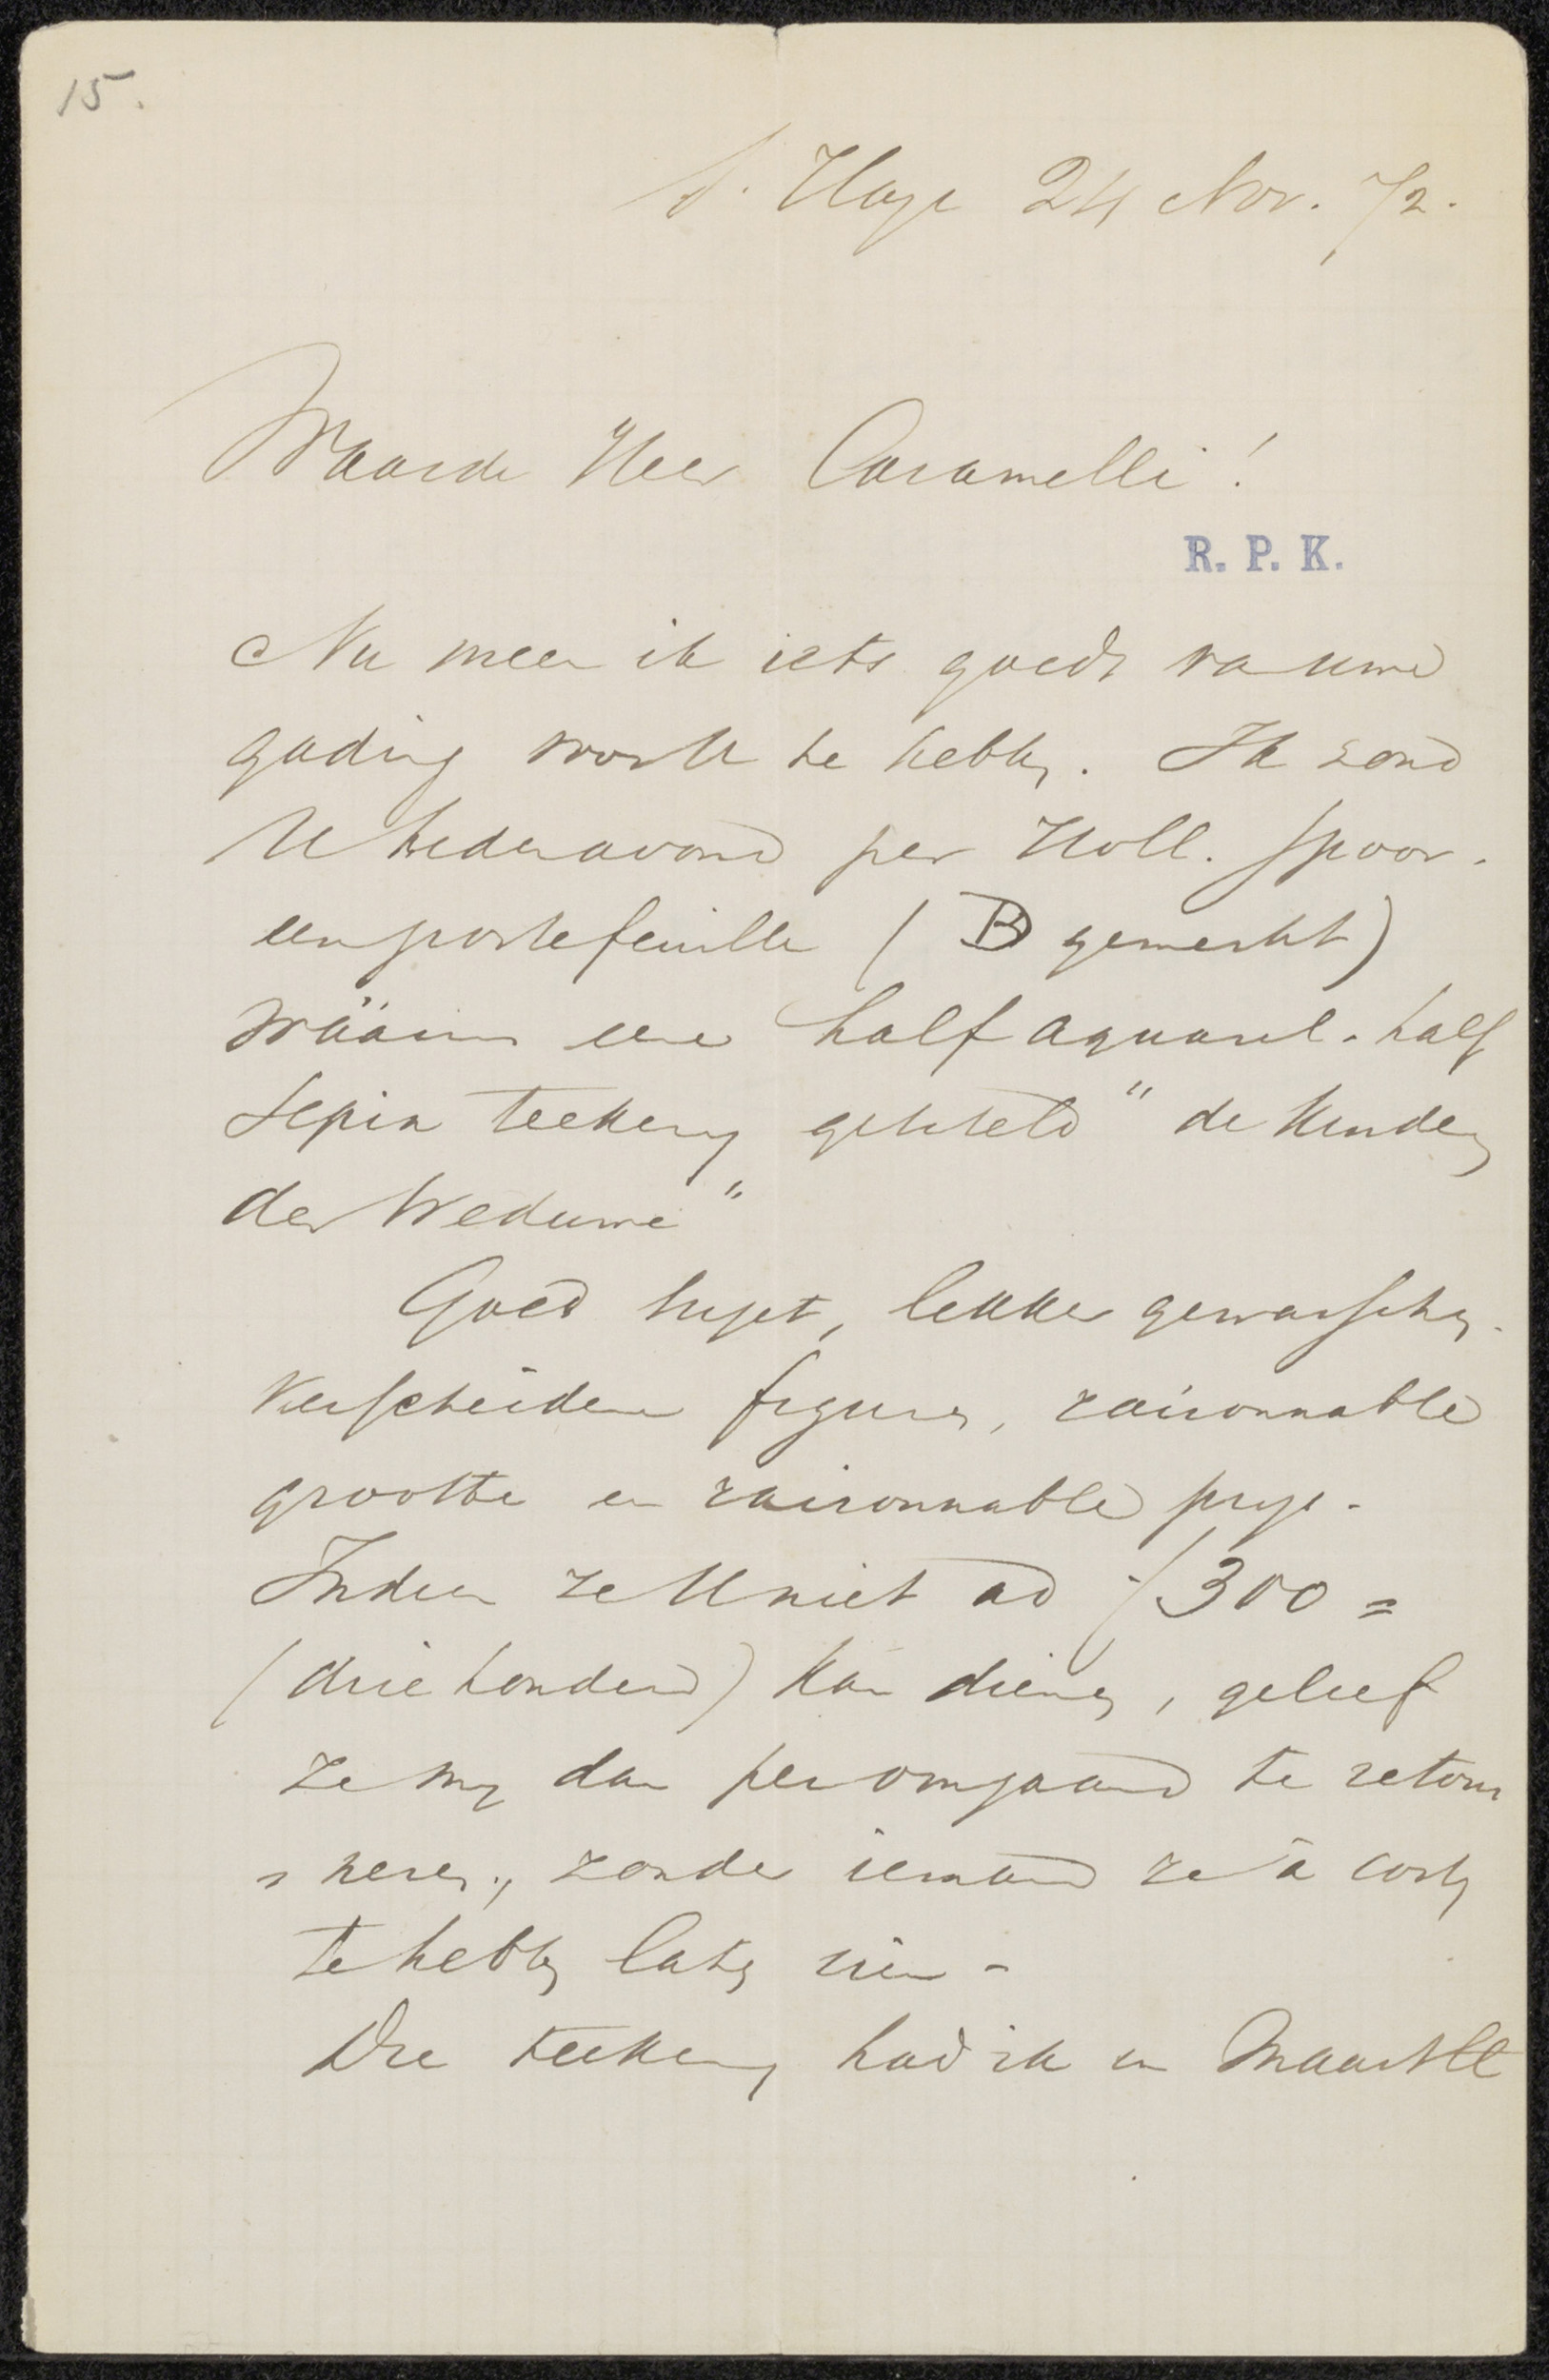 15.
s'Hage 24 Nov. 72.
Waarde Heer Caramelli!
R. P. K.
Nu meen ik iets goeds van Uwe
gading voor U te hebben. Ik zend
U hedenavond per Holl. Spoor.
een portefeuille (B gemerkt)
wäärin eene half aquarel. half
sepia teekening getiteld "de kinderen
der Weduwe"
Goed sujet, lekker gewasschen.
verscheidene figuren, raisonnable
grootte en raisonnable prijs.
Indien ze U niet ad ƒ 300 =
(driehonderd) kan dienen, gelief
ze mij dan per omgaand te retour
neren, zonder iemand ze à costi
te hebben laten zien -
Die teekening had ik in Maart ll